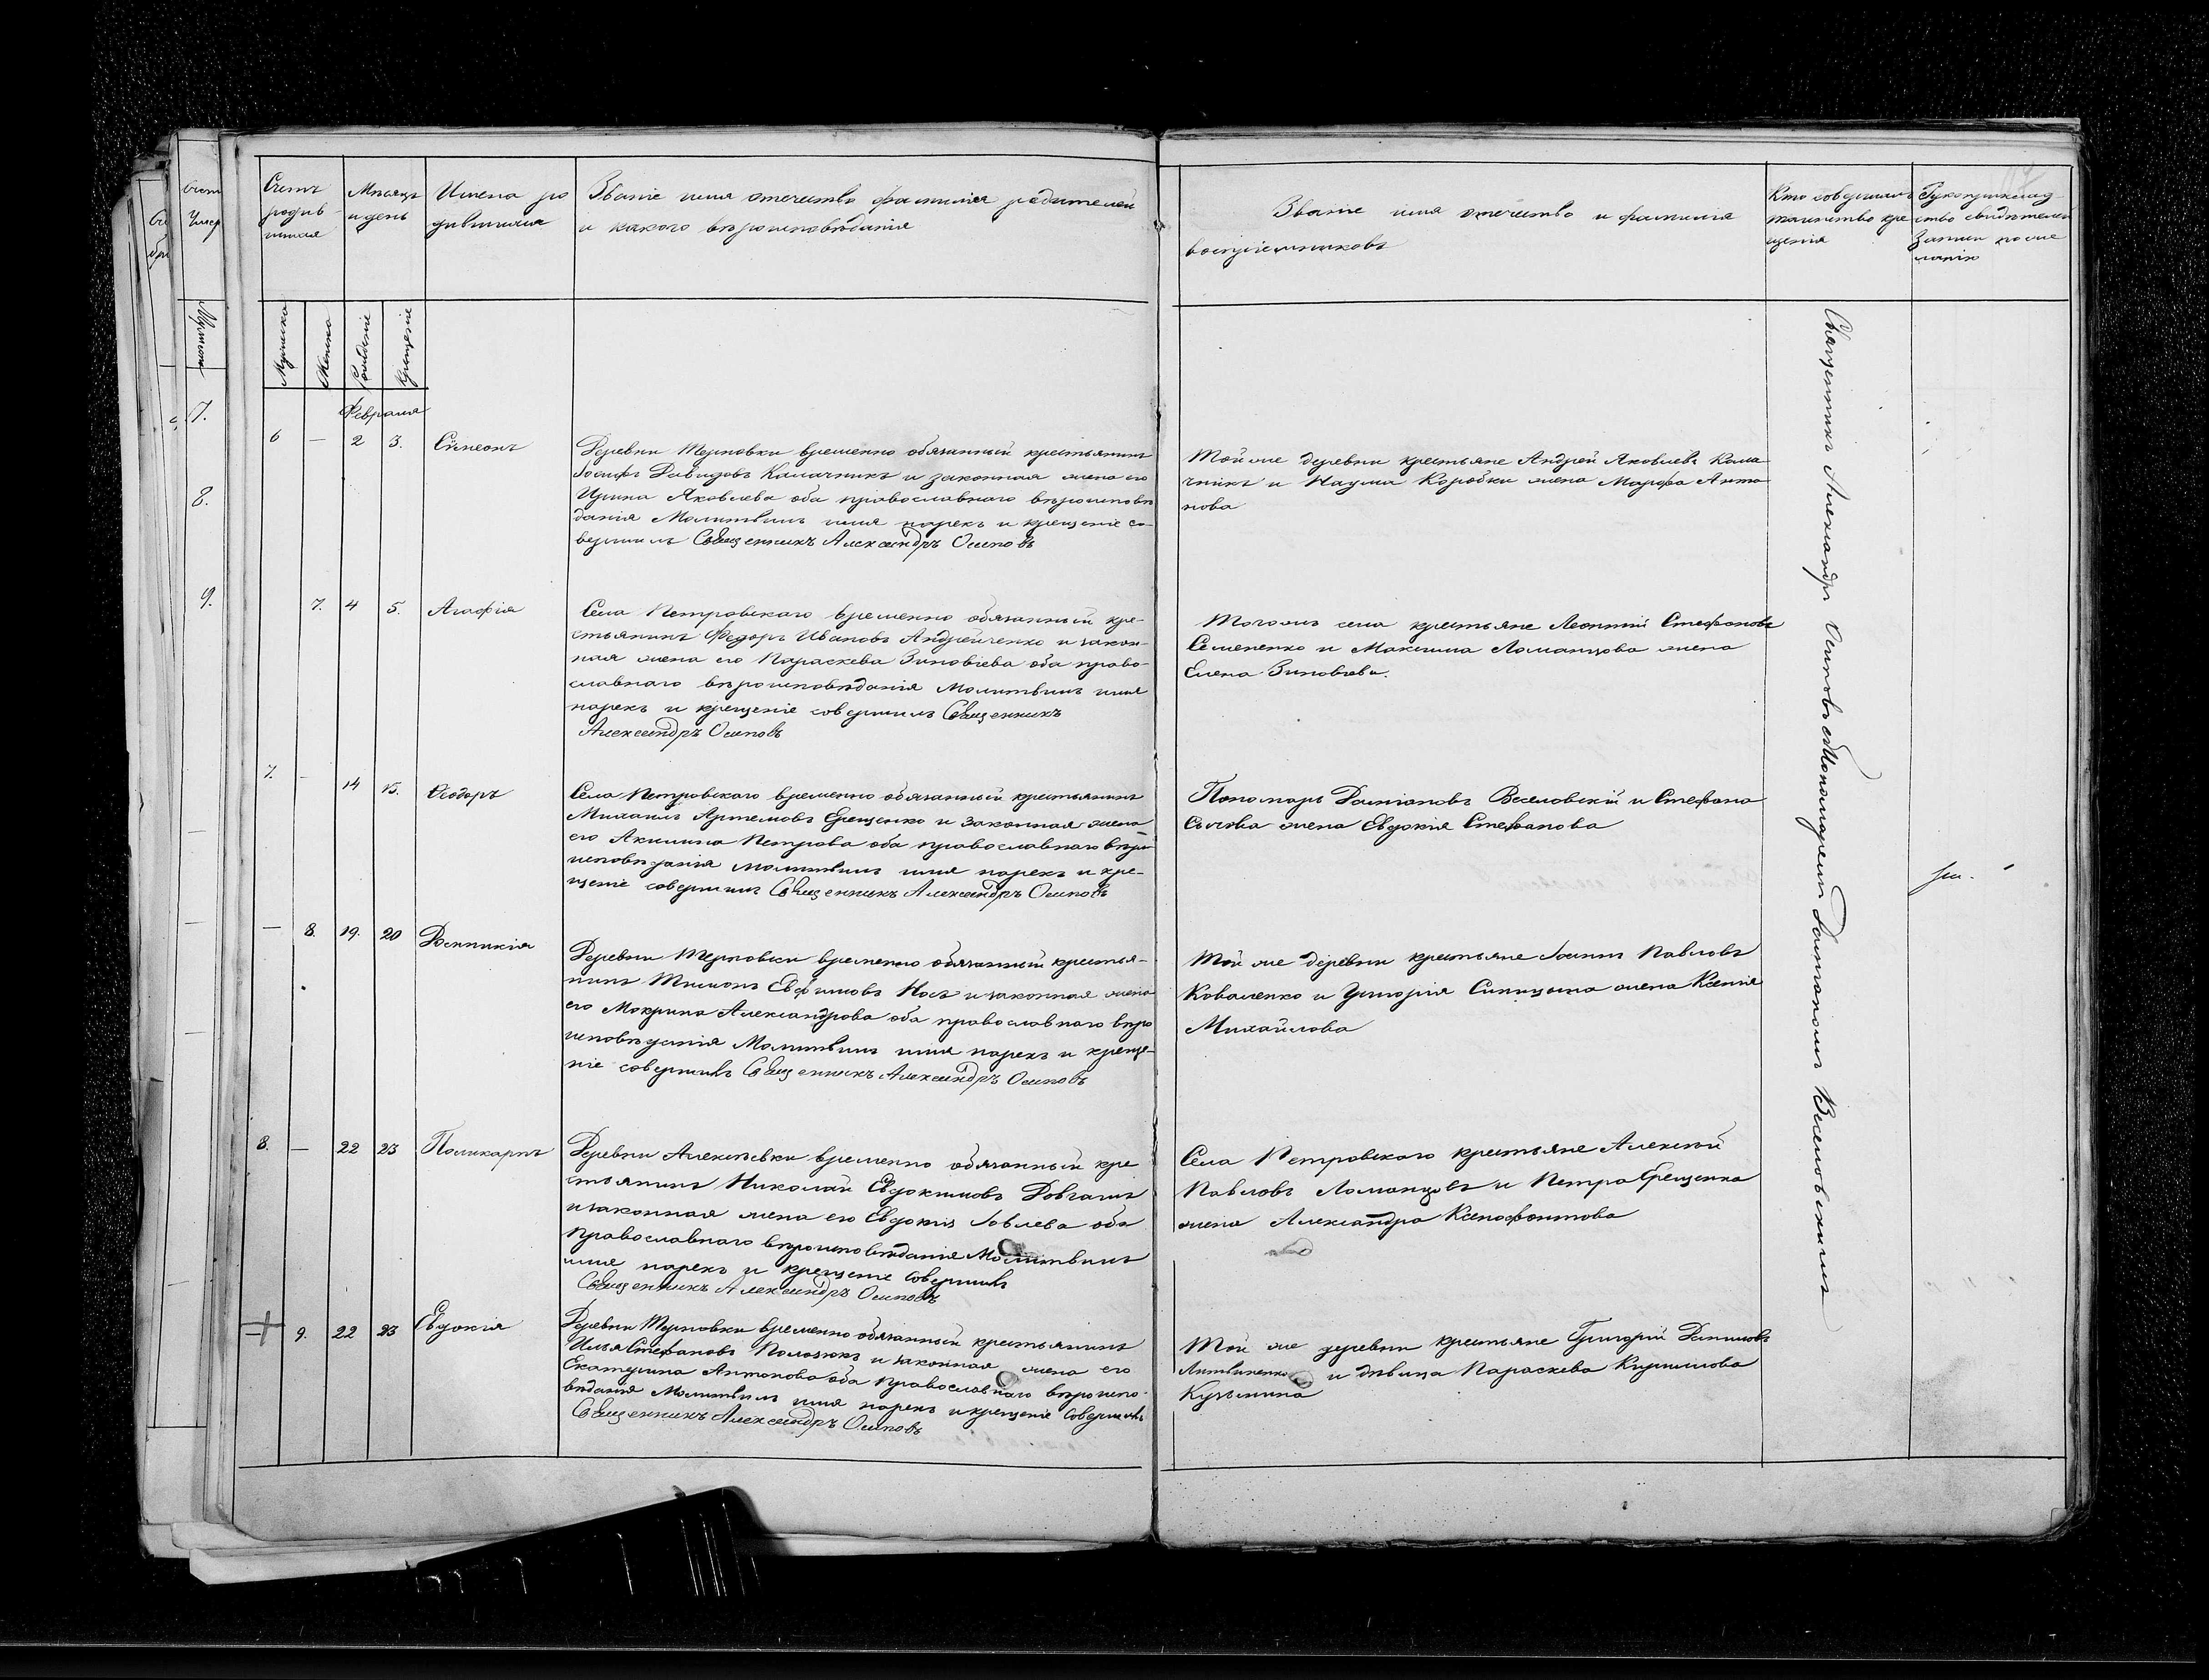 Счетъ родив шихся
Мѣсяцъ и день
Имена ро дившихся
Званіе имя отечество фамилія родителей
и какого вѣроисповѣданія
Званіе имя отечество и фамилія
воспріемниковъ
Кто совершалъ
таинство кре
щенія
Рукоприклад
ство свидѣтелей
записи по же
ланію
Мужска
Женска
Рожденіе
Крещеніе
Февраля
6 — 2 3. Сѵмеонъ
Деревни Терновки временно обязанный крестьянинъ
Іосифъ Давидовъ Калачникъ и законная жена его
Ирина Яковлева оба православнаго вѣроисповѣ
данія Молитвилъ имя нарекъ и крещеніе со-
вершилъ Священникъ Александръ Осиповъ
Той же деревни крестьяне Андрей Яковлевъ Кала
чникъ и Наума Коробки жена Марфа Анто
нова
7. 4 5. Агафія
Села Петровскаго временно обязанный кре-
стьянинъ Федоръ Ивановъ Андрейченко и закон-
ная жена его Параскева Зиновіева оба право-
славнаго вѣроисповѣданія Молитвилъ имя
нарекъ и крещеніе совершилъ Священникъ
Александръ Осиповъ
Тогожъ села крестьяне Леонтій Стефановъ
Семененко и Максима Ломанцова жена
Елена Зиновіева.
7. — 14 15. Ѳеодоръ
Села Петровскаго временно обязанный крестьянинъ
Михаилъ Артемовъ Ерещенко и законная жена
его Акилина Петрова оба православнаго вѣро
исповѣданія молитвилъ имя нарекъ и кре-
щеніе совершилъ Священникъ Александръ Осиповъ
Пономарь Даміановъ Веселовскій и Стефана
жена Евдокія Стефанова
— 8. 19. 20
Деревни Терновки временно обязанный крестья-
нинъ Тимонъ Евфимовъ Носъ и законная жена
его Макрина Александрова оба православнаго вѣро
исповѣданія Молитвилъ имя нарекъ и креще-
ніе совершилъ Священникъ Александръ Осиповъ
Той же деревни крестьяне Іоаннъ Павловъ
Коваленко и Григорія Синицына жена Ксенія
Михайлова
8. — 22 23 Поликарпъ
Деревни Алексѣевки временно обязанный кре
стьянинъ Николай Евдокимовъ Довгаль
и законная жена его Евдокія Іовлева оба
Православнаго вѣроисповѣданія Молитвилъ
имя нарекъ и крещеніе Совершилъ
Священникъ Александръ Осиповъ
Села Петровскаго крестьяне Алексѣй
Павловъ Ломанцовъ и Петра Ерещенка
жена Александра Ксенофонтова
— 9. 22 23 Евдокія
Деревни Терновки временно обязанный крестьянинъ
Илья Стефановъ Полозюкъ и законная жена его
Екатерина Антонова оба Православнаго вѣроиспо-
вѣданія Молитвилъ имя нарекъ и крещеніе Совершилъ
Священникъ Александръ Осиповъ
Той же деревни крестьяне Григорій Даниловъ
Литвиненко и дѣвица Параскева Кириллова
Кузьмина
Священникъ Александръ Осиповъ съ Пономаремъ Даміаномъ Веселовскимъ
7.
8.
9.